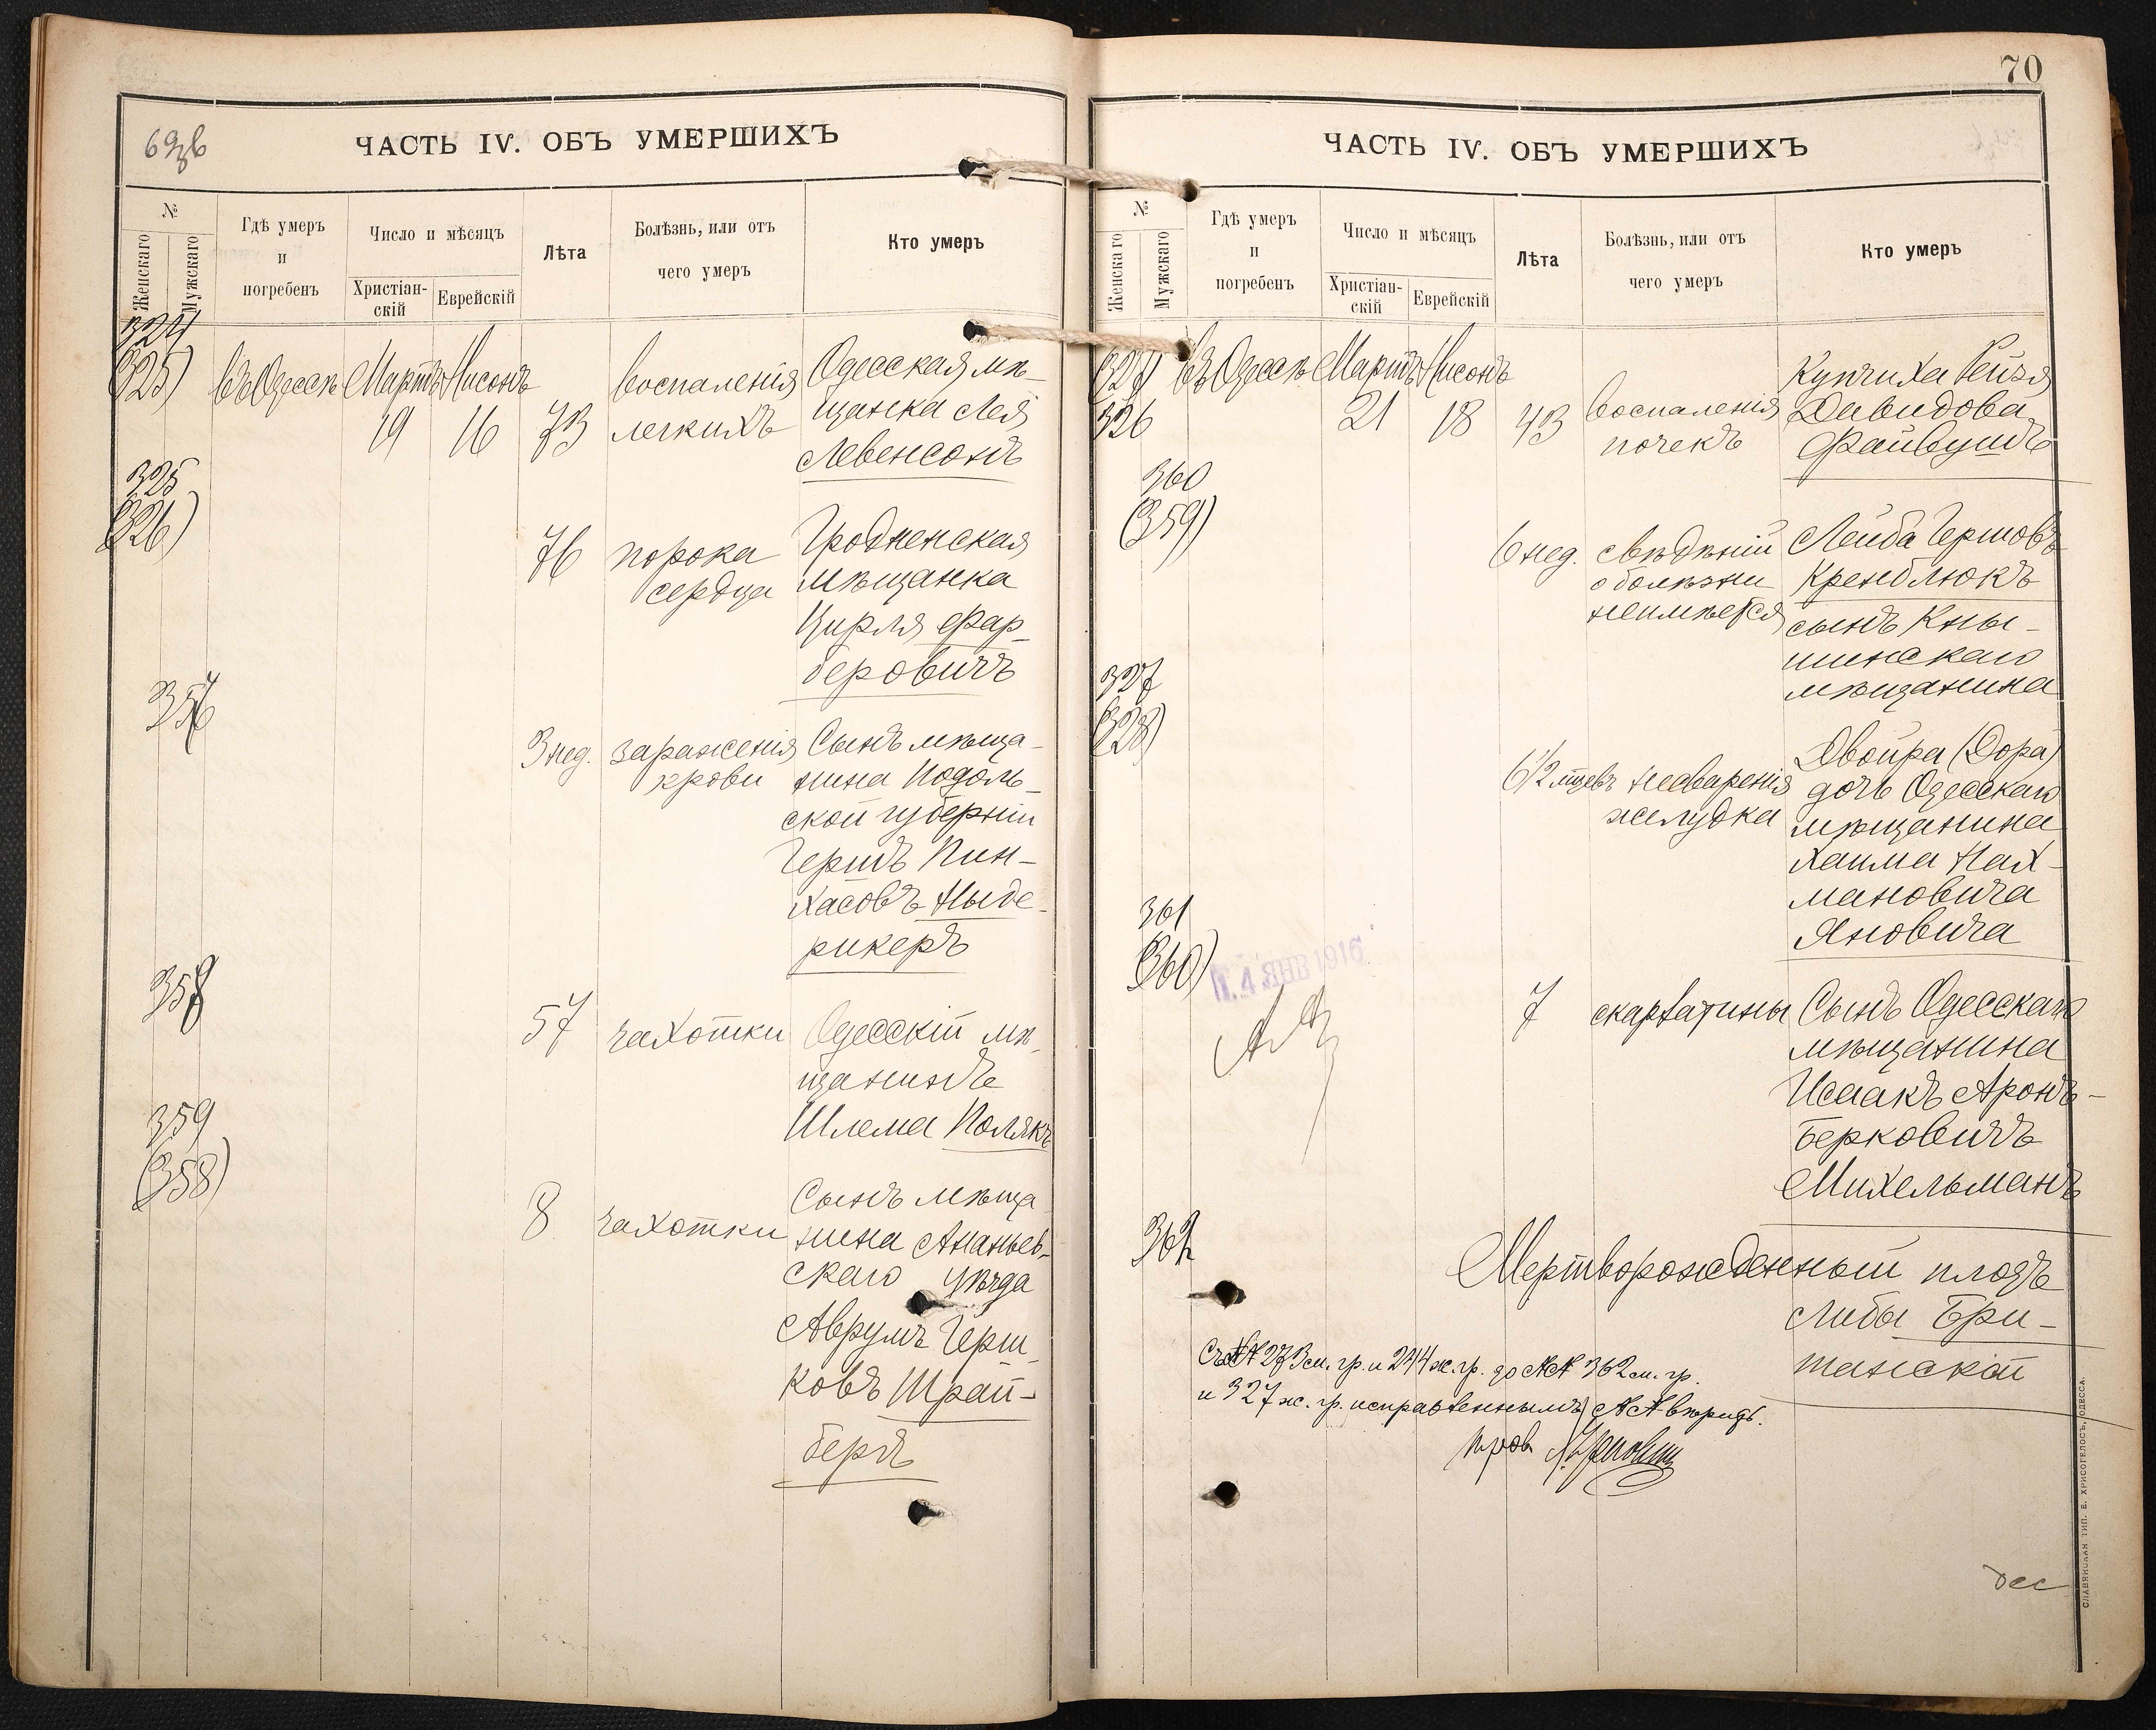 69 об
ЧАСТЬ IV. ОБЪ УМЕРШИХЪ
№
Женскаго
Мужскаго
Гдѣ умеръ
и
погребенъ
Число и мѣсяцъ
Христіан-
скій
Еврейскій
Лѣта
Болѣзнь, или отъ
чего умеръ
Кто умеръ
324
(325)
въ Одессѣ
Мартъ
19
Нисонъ
16
73
воспаленія
легкихъ
Одесская мѣ-
щанка Лея
Левенсонъ
325
(326)
76
порока
сердца
Гродненская
мѣщанка
Цирля Фар-
беровичъ
357
3 нед.
зараженія
крови
Сынъ мѣща-
нина Подоль-
ской губерніи
Гершъ Пин-
хасовъ Ныде-
рикеръ
358
57
чахотки
Одесскій мѣ-
щанинъ
Шлема Полякъ
359
(358)
8
чахотки
Сынъ мѣща-
нина Ананьев-
скаго уѣзда
Аврумъ Герш-
ковъ Шрай-
беръ
70
ЧАСТЬ IV. ОБЪ УМЕРШИХЪ
№
Женскаго
Мужскаго
Гдѣ умеръ
и
погребенъ
Число и мѣсяцъ
Христіан-
скій
Еврейскій
Лѣта
Болѣзнь, или отъ
чего умеръ
Кто умеръ
(327)
326
въ Одессѣ
Мартъ
21
Нисонъ
18
43
воспаленія
почекъ
Купчиха Рейзя
Давидова
Файвушъ
360
(359)
6 нед.
свѣдѣній
о болѣзни
неимѣется
Лейба Гершовъ
Кренблюкъ
сынъ Кны-
шинскаго
мѣщанина
327
(328)
6 1/2 мцевъ
несваренія
желудка
Двойра (Дора)
дочь Одесскаго
мѣщанина
Хаима Нах-
мановича
Яновича
361
(360)
14 ЯНВ 1916
7
скарлатины
Сынъ Одесскаго
мѣщанина
Исаакъ Аронъ-
Берковичъ
Михельманъ
362
Мертворожденный плодъ
Либы Бри-
танской
Съ №№ 273 м. гр. и 244 ж. гр. до №№ 362 м. гр.
и 327 ж. гр. исправленнымъ №№ вѣрить.
СЛАВЯНСКАЯ ТИП. Е. ХРИСОГЕЛОСЪ, ОДЕССА.